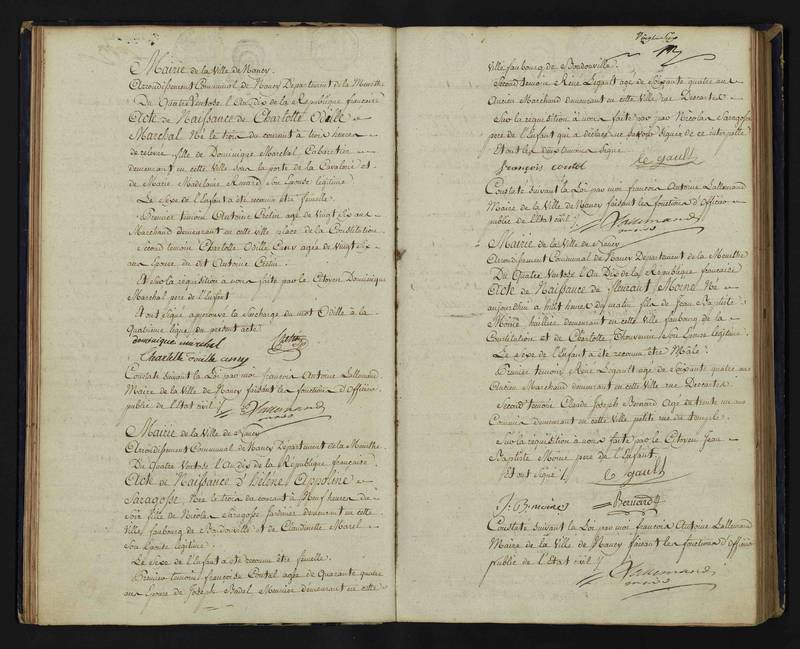 Mairie de la Ville de Nancy.
Arrondissement Communal de Nancy Département de la Meurthe
Du Quatre Ventose l'An dix de la République française
Acte de Naissance de Charlotte Odille
Marchal Née le trois du courant à trois heures
de relevée fille de Dominique Marchal Cabaretier
demeurant en cette ville sous la porte de la Cavalerie et
de Marie Madelaine son Epouse légitime
Le Sexe de l'Enfant a été reconnu être femelle
Premier temoin Antoine agé de Vingt Six ans
Marchand demeurant en cette ville place de la Constitution
Second temoin Charlotte Odille Cuny agée de Vingt Six
ans Epouse du dit Antoine
Et sur la requisition a nous faite par le Citoyen Dominique
Marchal pere de l'Enfant
Et ont Signé approuvé la Surcharge du mot Odille à la
Quatrieme ligne du present acte
dominique marchal
Charlotte odille cuny
Constaté Suivant la Loi par moi françois Antoine Lallemand
Maire de la Ville de Nancy faisant les fonctions d'Officier
public de l'Etat civil /. Lallemand
Mairie de la Ville de Nancy
Arrondissement Communal de Nancy Département de la Meurthe
Du Quatre Ventose l'An dix de la République française
Acte de Naissance d'hélène Appoline
Saragosse Née le trois du courant à Neuf heures du
Soir fille de Nicolas Saragosse Jardinier demeurant en cette
Ville faubourg de Bondonville et de Claudinette Marel
Son Epouse légitime.
Le Sexe de l'Enfant a été reconnu être femelle
Premier temoin françoise Contel agée de Quarante quatre
ans Epouse de Joseph Meunier demeurant en cette
Ville faubourg de Bondonville.
Second temoin René Legault agé de Soixante quatre ans
Ancien Marchand demeurant en cette Ville rue Descartes
Sur la requisition à nous faite par Nicolas Saragosse
pere de l'Enfant qui a déclaré ne savoir Signer de ce interpellé
Et ont les deux temoins Signé
françois contel
le gault
Constaté Suivant la Loi par moi françois Antoine Lallemand
Maire de la Ville de Nancy faisant les fonctions d'Officier
public de l'Etat civil /. Lallemand
Mairie de la Ville de Nancy
Arrondissement Communal de Nancy Département de la Meurthe
Du Quatre Ventose l'An Dix de la République française
Acte de Naissance de Moine Né
aujourdhui a huit heures du matin fils de Jean Baptiste
Moine demeurant en cette Ville faubourg de la
Constitution et de Charlotte Thouvenin Son Epouse légitime
Le Sexe de l'Enfant a été reconnu être Mâle.
Premier temoin René Legault agé de Soixante quatre ans
Ancien Marchand demeurant en cette Ville rue Descartes
Second temoin Claude Joseph Bernard Agé de trente un ans
Commis demeurant en cette Ville petite rue du temple.
Sur la requisition à nous faite par le Citoyen Jean
Baptiste Moine pere de l'Enfant.
Et ont Signé /. le gault
J. B. moine Bernard
Constaté Suivant la Loi par moi françois Antoine Lallemand
Maire de la Ville de Nancy faisant les fonctions d'Officier
public de l'Etat civil /. Lallemand